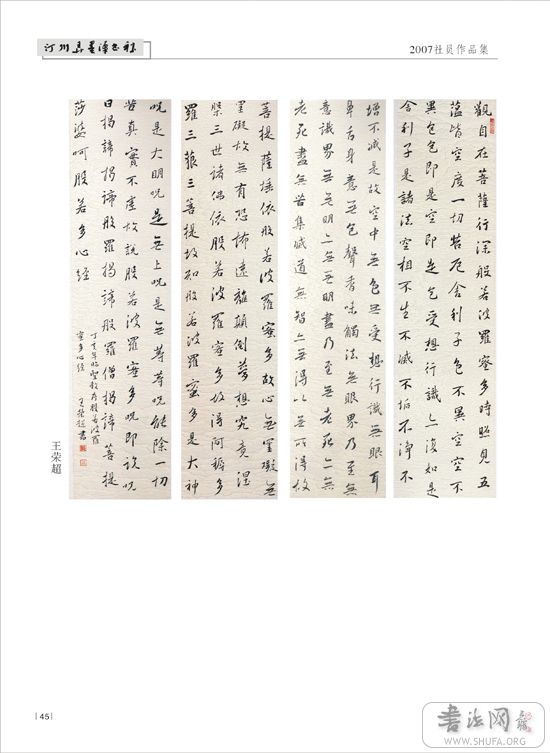 2007社员作品集
觀自在菩薩行深般若波羅蜜多時照見五
蘊皆空度一切苦厄舍利子色不異空空不
異色色即是空空即是色受想行識亦復如是
舍利子是諸法空相不生不滅不垢不淨不
增不減是故空中無色無受想行識無眼耳
鼻舌身意無色聲香味觸法無眼界乃至無
意識界無無明亦無無明盡乃至無老死亦無
老死盡無苦集滅道無智亦無得以無所得故
菩提薩埵依般若波羅蜜多故心無罣礙無
罣礙故無有恐怖遠離顛倒夢想究竟涅
槃三世諸佛依般若波羅蜜多故得阿耨多
羅三藐三菩提故知般若波羅蜜多是大神
咒是大明咒是無上咒是無等等咒能除一切
苦真實不虛故說般若波羅蜜多咒即說咒
曰揭諦揭諦般羅揭諦般羅僧揭諦菩提
莎婆呵般若多心經
丁亥年臨聖教序般若波羅
蜜多心經 王荣超書
王荣超
45
书法网
WWW.SHUFA.ORG